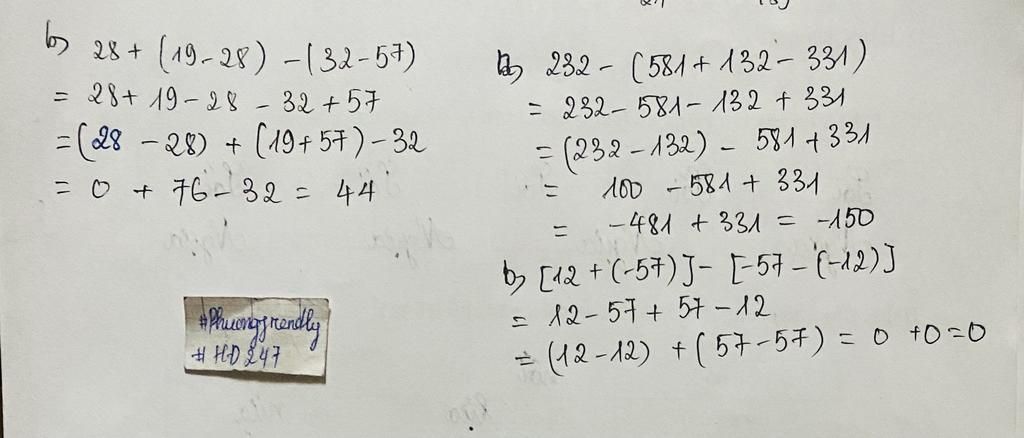 b) 28 + (19 - 28) - (32 - 57)
= 28 + 19 - 28 - 32 + 57
= (28 - 28) + (19 + 57) - 32
= 0 + 76 - 32 = 44
#Phuongfrendly
#HD247
a) 232 - (581 + 132 - 331)
= 232 - 581 - 132 + 331
= (232 - 132) - 581 + 331
= 100 - 581 + 331
= -481 + 331 = -150
b) [12 + (-57)] - [-57 - (-12)]
= 12 - 57 + 57 - 12
= (12 - 12) + (57 - 57) = 0 + 0 = 0